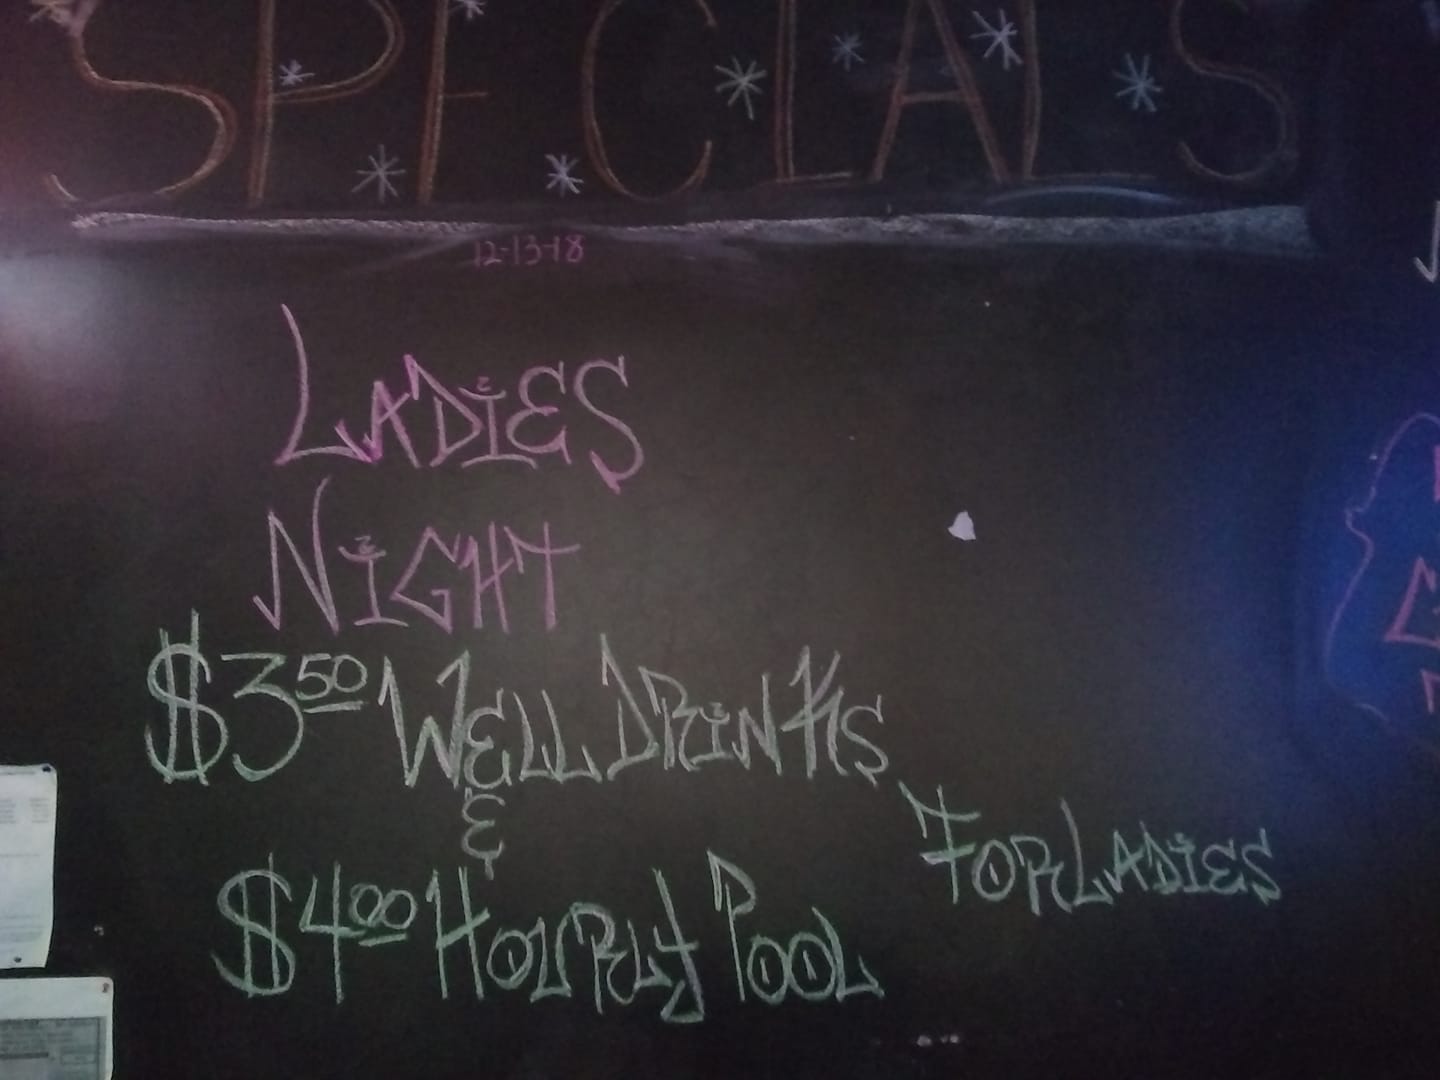 SPECIALS
12-13-18
LADIES
NIGHT
$3.50 WELL DRINKS
&
FOR LADIES
$4.00 HOURLY POOL